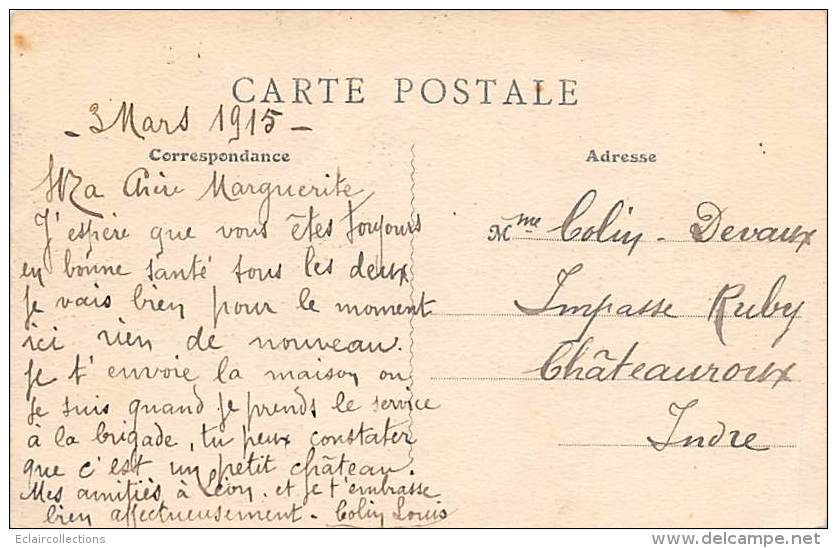 CARTE POSTALE
- 3 Mars 1915 -
Correspondance
Ma Chère Marguerite
J'espère que vous êtes toujours
en bonne santé tous les deux
je vais bien pour le moment
ici rien de nouveau.
Je t'envoie la maison ou
je suis quand je prends le service
à la brigade, tu peux constater
que c'est un petit château.
Mes amitiés à Léon. et je t'embrasse
bien affectueusement - Colin Louis
Adresse
Mme Colin - Devaux
Impasse Ruby
Châteauroux
Indre
Eclaircollections
www.delcampe.net